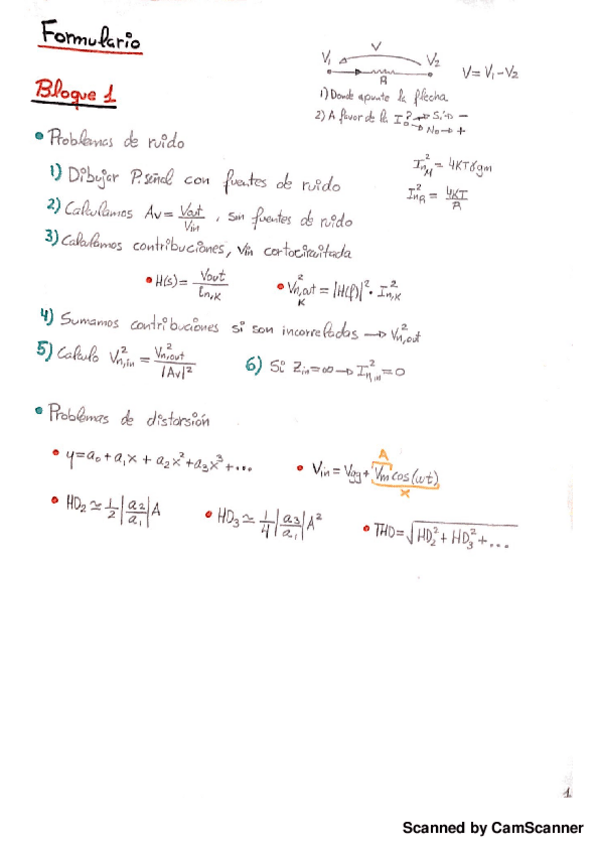 Formulario
V
V₁ V₂
R
V = V₁ - V₂
1) Donde apunte la flecha
2) A favor de la I? → Sí → -
→ No → +
Bloque 1
• Problemas de ruido
I²nM = 4KTγgm
I²nR = 4KT/R
1) Dibujar P. señal con fuentes de ruido
2) Calculamos Av = Vout/Vin , sin fuentes de ruido
3) Calculamos contribuciones, Vin cortocircuitada
• H(s) = Vout/In,K • V²n,out K = |H(f)|² · I²n,K
4) Sumamos contribuciones si son incorreladas → V²n,out
5) Calculo V²n,in = V²n,out/|Av|² 6) Si Zin = ∞ → I²n,in = 0
• Problemas de distorsión
• y = a₀ + a₁x + a₂x² + a₃x³ + ... • Vin = VGG + Vm cos(ωt)
A
x
• HD₂ ≃ 1/2 |a₂/a₁| A • HD₃ ≃ 1/4 |a₃/a₁| A² • THD = √(HD₂² + HD₃² + ...)
1
Scanned by CamScanner